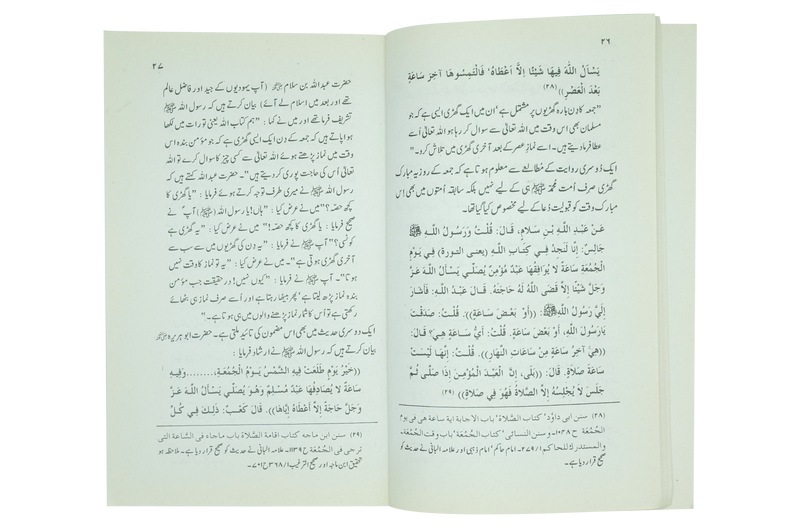 ۲۶
يَسْأَلُ اللّٰهَ فِيهَا شَيْئًا إِلَّا أَعْطَاهُ، فَالْتَمِسُوهَا آخِرَ سَاعَةٍ
بَعْدَ الْعَصْرِ)) (۲۸)
”جمعہ کا دن بارہ گھڑیوں پر مشتمل ہے‘ ان میں ایک گھڑی ایسی ہے کہ جو
مسلمان بھی اس وقت میں اللہ تعالیٰ سے سوال کر رہا ہو اللہ تعالیٰ اُسے
عطا فرما دیتے ہیں۔ اسے نماز عصر کے بعد آخری گھڑی میں تلاش کرو۔“
ایک دوسری روایت کے مطالعے سے معلوم ہوتا ہے کہ جمعہ کے روز یہ مبارک
گھڑی صرف اُمت محمدیہ ﷺ ہی کے لیے نہیں بلکہ سابقہ اُمتوں میں بھی اس
مبارک وقت کو قبولیت دُعا کے لیے مخصوص کیا گیا تھا۔
عَنْ عَبْدِ اللّٰهِ بْنِ سَلَامٍ، قَالَ: قُلْتُ وَرَسُولُ اللّٰهِ ﷺ
جَالِسٌ: إِنَّا لَنَجِدُ فِي كِتَابِ اللّٰهِ (يعنى التورة) فِي يَوْمِ
الْجُمُعَةِ سَاعَةً لَا يُوَافِقُهَا عَبْدٌ مُؤْمِنٌ يُصَلِّي يَسْأَلُ اللّٰهَ عَزَّ
وَجَلَّ شَيْئًا إِلَّا قَضَى اللّٰهُ لَهُ حَاجَتَهُ. قَالَ عَبْدُ اللّٰهِ: فَأَشَارَ
إِلَيَّ رَسُولُ اللّٰهِ ﷺ: ((أَوْ بَعْضَ سَاعَةٍ)). قُلْتُ: صَدَقْتَ
يَارَسُولَ اللّٰهِ، أَوْ بَعْضَ سَاعَةٍ. قُلْتُ: أَيُّ سَاعَةٍ هِيَ؟ قَالَ:
((هِيَ آخِرُ سَاعَةٍ مِنْ سَاعَاتِ النَّهَارِ)). قُلْتُ: إِنَّهَا لَيْسَتْ
سَاعَةَ صَلَاةٍ. قَالَ: ((بَلَى، إِنَّ الْعَبْدَ الْمُؤْمِنَ إِذَا صَلَّى ثُمَّ
جَلَسَ لَا يُجْلِسُهُ إِلَّا الصَّلَاةُ فَهُوَ فِي صَلَاةٍ)) (۲۹)
(۲۸) سنن ابی داوٗد‘ کتاب الصَّلَاة‘ باب الاجابة اية ساعة هی فی یوم
الجُمُعَة ح ۱۰۳۸۔ و سنن النسائی‘ کتاب الجُمُعَة‘ باب وقت الجُمُعَة۔
والمستدرك للحاکم ۱/ ۲۷۹۔ امام حاکم‘ امام ذہبی اور علامہ البانی نے حدیث کو
صحیح قرار دیا ہے۔
۲۷
حضرت عبداللہ بن سلام (آپ یہودیوں کے جید اور فاضل عالم
تھے اور بعد میں اسلام لے آئے) بیان کرتے ہیں کہ رسول اللہ ﷺ
تشریف فرما تھے اور میں نے کہا : ”ہم کتاب اللہ یعنی تورات میں لکھا
ہوا پاتے ہیں کہ جمعہ کے دن ایک ایسی گھڑی ہے کہ جو مؤمن بندہ اس
وقت میں نماز پڑھتے ہوئے اللہ تعالیٰ سے کسی چیز کا سوال کرے تو اللہ
تعالیٰ اُس کی حاجت پوری کر دیتے ہیں“۔ حضرت عبداللہ کہتے ہیں کہ
رسول اللہ ﷺ نے میری طرف توجہ کرتے ہوئے فرمایا : ”یا گھڑی کا
کچھ حصہ؟“ میں نے عرض کیا : ”ہاں! یا رسول اللہ (ﷺ) آپ نے
صحیح فرمایا : یا گھڑی کا کچھ حصہ!“ میں نے عرض کیا : ”یہ گھڑی ہے
کونسی؟“ آپ ﷺ نے فرمایا : ”یہ دن کی گھڑیوں میں سے سب سے
آخری گھڑی ہوتی ہے“۔ میں نے عرض کیا : ”یہ تو نماز کا وقت نہیں
ہوتا“۔ آپ ﷺ نے فرمایا : ”کیوں نہیں! در حقیقت جب مؤمن
بندہ نماز پڑھ لیتا ہے‘ پھر بیٹھا رہتا ہے اور اُسے صرف نماز ہی بٹھائے
رکھتی ہے تو اُس کا شمار نماز پڑھنے والوں میں ہی ہوتا ہے۔“
ایک دوسری حدیث میں بھی اس مضمون کی تائید ملتی ہے۔ حضرت ابوہریرہ
بیان کرتے ہیں کہ رسول اللہ ﷺ نے ارشاد فرمایا :
((خَيْرُ يَوْمٍ طَلَعَتْ فِيهِ الشَّمْسُ يَوْمُ الْجُمُعَةِ،........وَفِيهِ
سَاعَةٌ لَا يُصَادِفُهَا عَبْدٌ مُسْلِمٌ وَهُوَ يُصَلِّي يَسْأَلُ اللّٰهَ عَزَّ
وَجَلَّ حَاجَةً إِلَّا أَعْطَاهُ إِيَّاهَا)). قَالَ كَعْبٌ: ذٰلِكَ فِي كُلِّ
(۲۹) سنن ابن ماجه کتاب اقامة الصَّلَاة باب ماجاء فی السَّاعة التی
ترجی فی الجُمُعَة ح ۱۱۳۹۔ علامہ البانی نے حدیث کو صحیح قرار دیا ہے۔ ملاحظہ ہو
تحقیق ابن ماجہ اور صحیح الترغیب ۱/ ۳۶۸ ح ۷۰۱۔